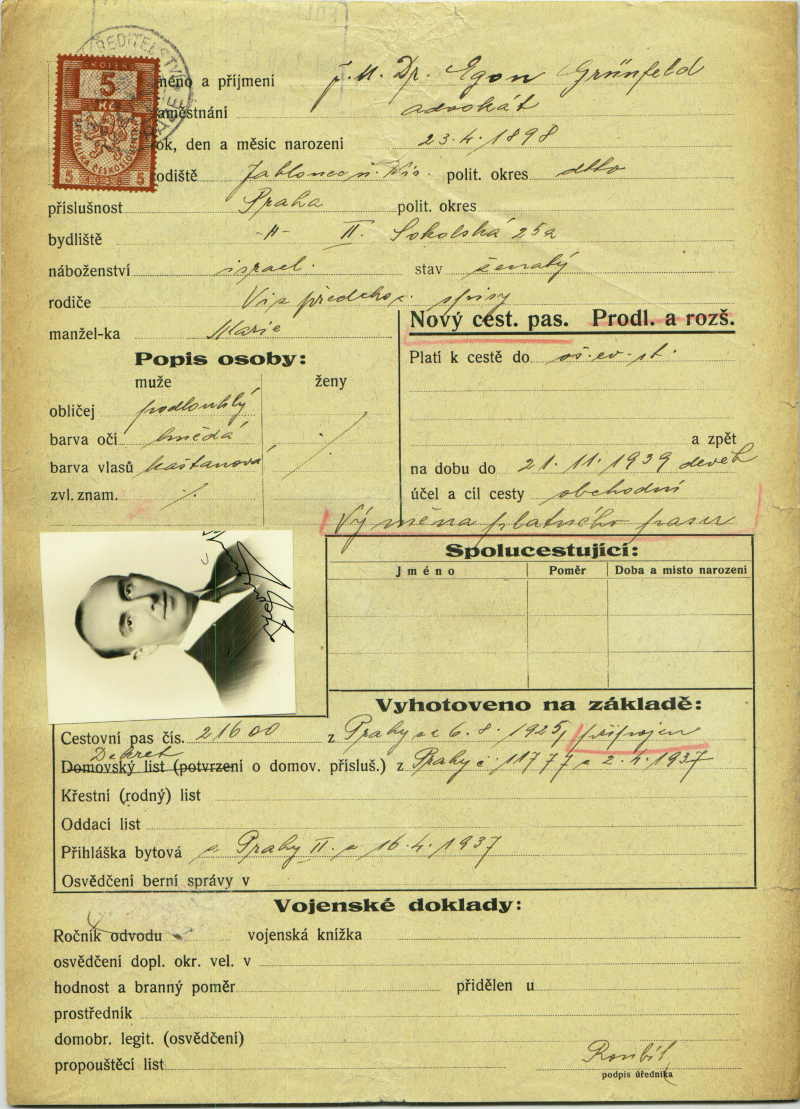 ŘEDITELSTV
KOLEK
5
Kč
REPUBLIKA ČESKOSLOVENSKÁ
5 5
méno a příjmení J. U. Dr. Egon Grünfeld
aměstnání advokát
ok, den a měsíc narození 23.4.1898
odiště Jablonec n. Nis. polit. okres dtto
příslušnost Praha polit. okres
bydliště -"- II. Sokolská 25a
náboženství israel. stav ženatý
rodiče Viz předchoz. spisy
manžel-ka Marie
Nový cest. pas. Prodl. a rozš.
Popis osoby:
muže ženy
Platí k cestě do vš. ev. st.
obličej podlouhlý
barva očí hnědá
a zpět
barva vlasů kaštanová
na dobu do 21.11.1939
zvl. znam. ·/·
účel a cíl cesty obchodní
Výměna platného pasu
Spolucestující:
Jméno Poměr Doba a misto narozeni
Vyhotoveno na základě:
Cestovní pas čís. 21600 z Prahy 6.8.1925, připojen
Dekret
Domovský list (potvrzení o domov. přísluš.) z Prahy č. 11777 z 2.4.1937
Křestní (rodný) list
Oddací list
Přihláška bytová z Prahy II. z 16.4.1937
Osvědčení berní správy v
Vojenské doklady:
Ročník odvodu vojenská knížka
osvědčení dopl. okr. vel. v
hodnost a branný poměr přidělen u
prostředník
domobr. legit. (osvědčení)
propouštěcí list
podpis úředníka